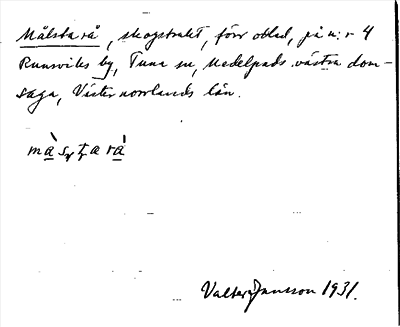 Målsta rå, skogstrakt, förr odlad, på n:r 4
Runsviks by, Tuna sn, Medelpads västra dom-
saga, Västernorrlands län.
Valter Jansson 1931.